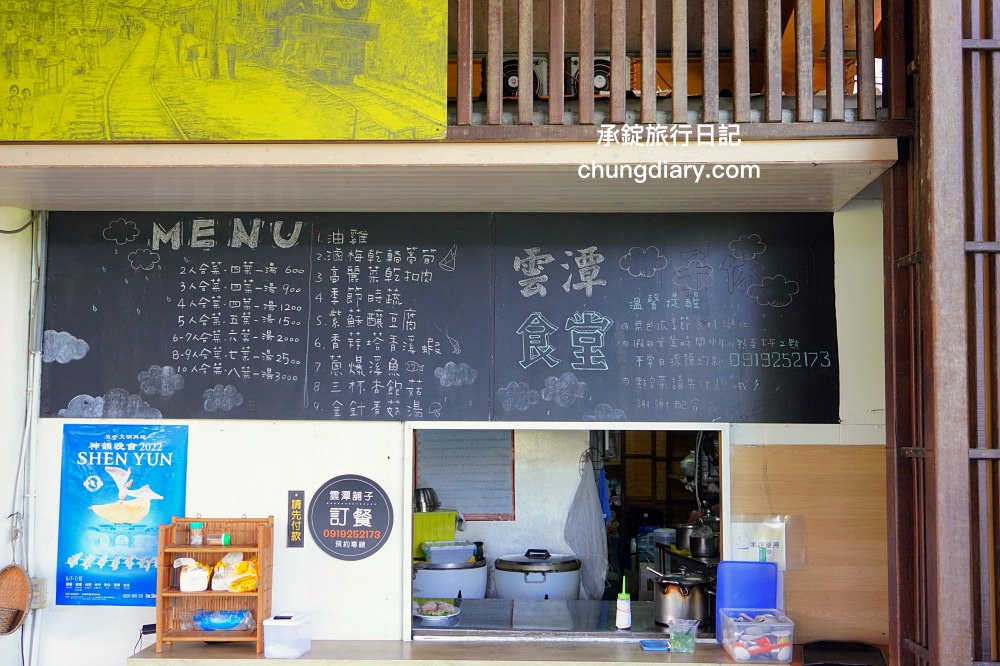 承錠旅行日記
chungdiary.com
MENU
2人合菜·四菜一湯 600
3人合菜·四菜一湯 900
4人合菜·四菜一湯 1200
5人合菜·五菜一湯 1500
6-7人合菜·六菜一湯 2000
8-9人合菜·七菜一湯 2500
10人合菜·八菜一湯 3000
1. 油雞
2. 滷梅乾轎篙筍
3. 高麗菜乾扣肉
4. 季節時蔬
5. 紫蘇釀豆腐
6. 香蒜塔香溪蝦
7. 蔥爆溪魚
8. 三杯杏鮑菇
9. 金針香菇湯
雲潭
食堂
溫馨提醒
平常日認預約制 0919252173
謝謝配合
神韻晚會2022
SHEN YUN
請先付款
雲潭舖子
訂餐
0919252173
預約專線